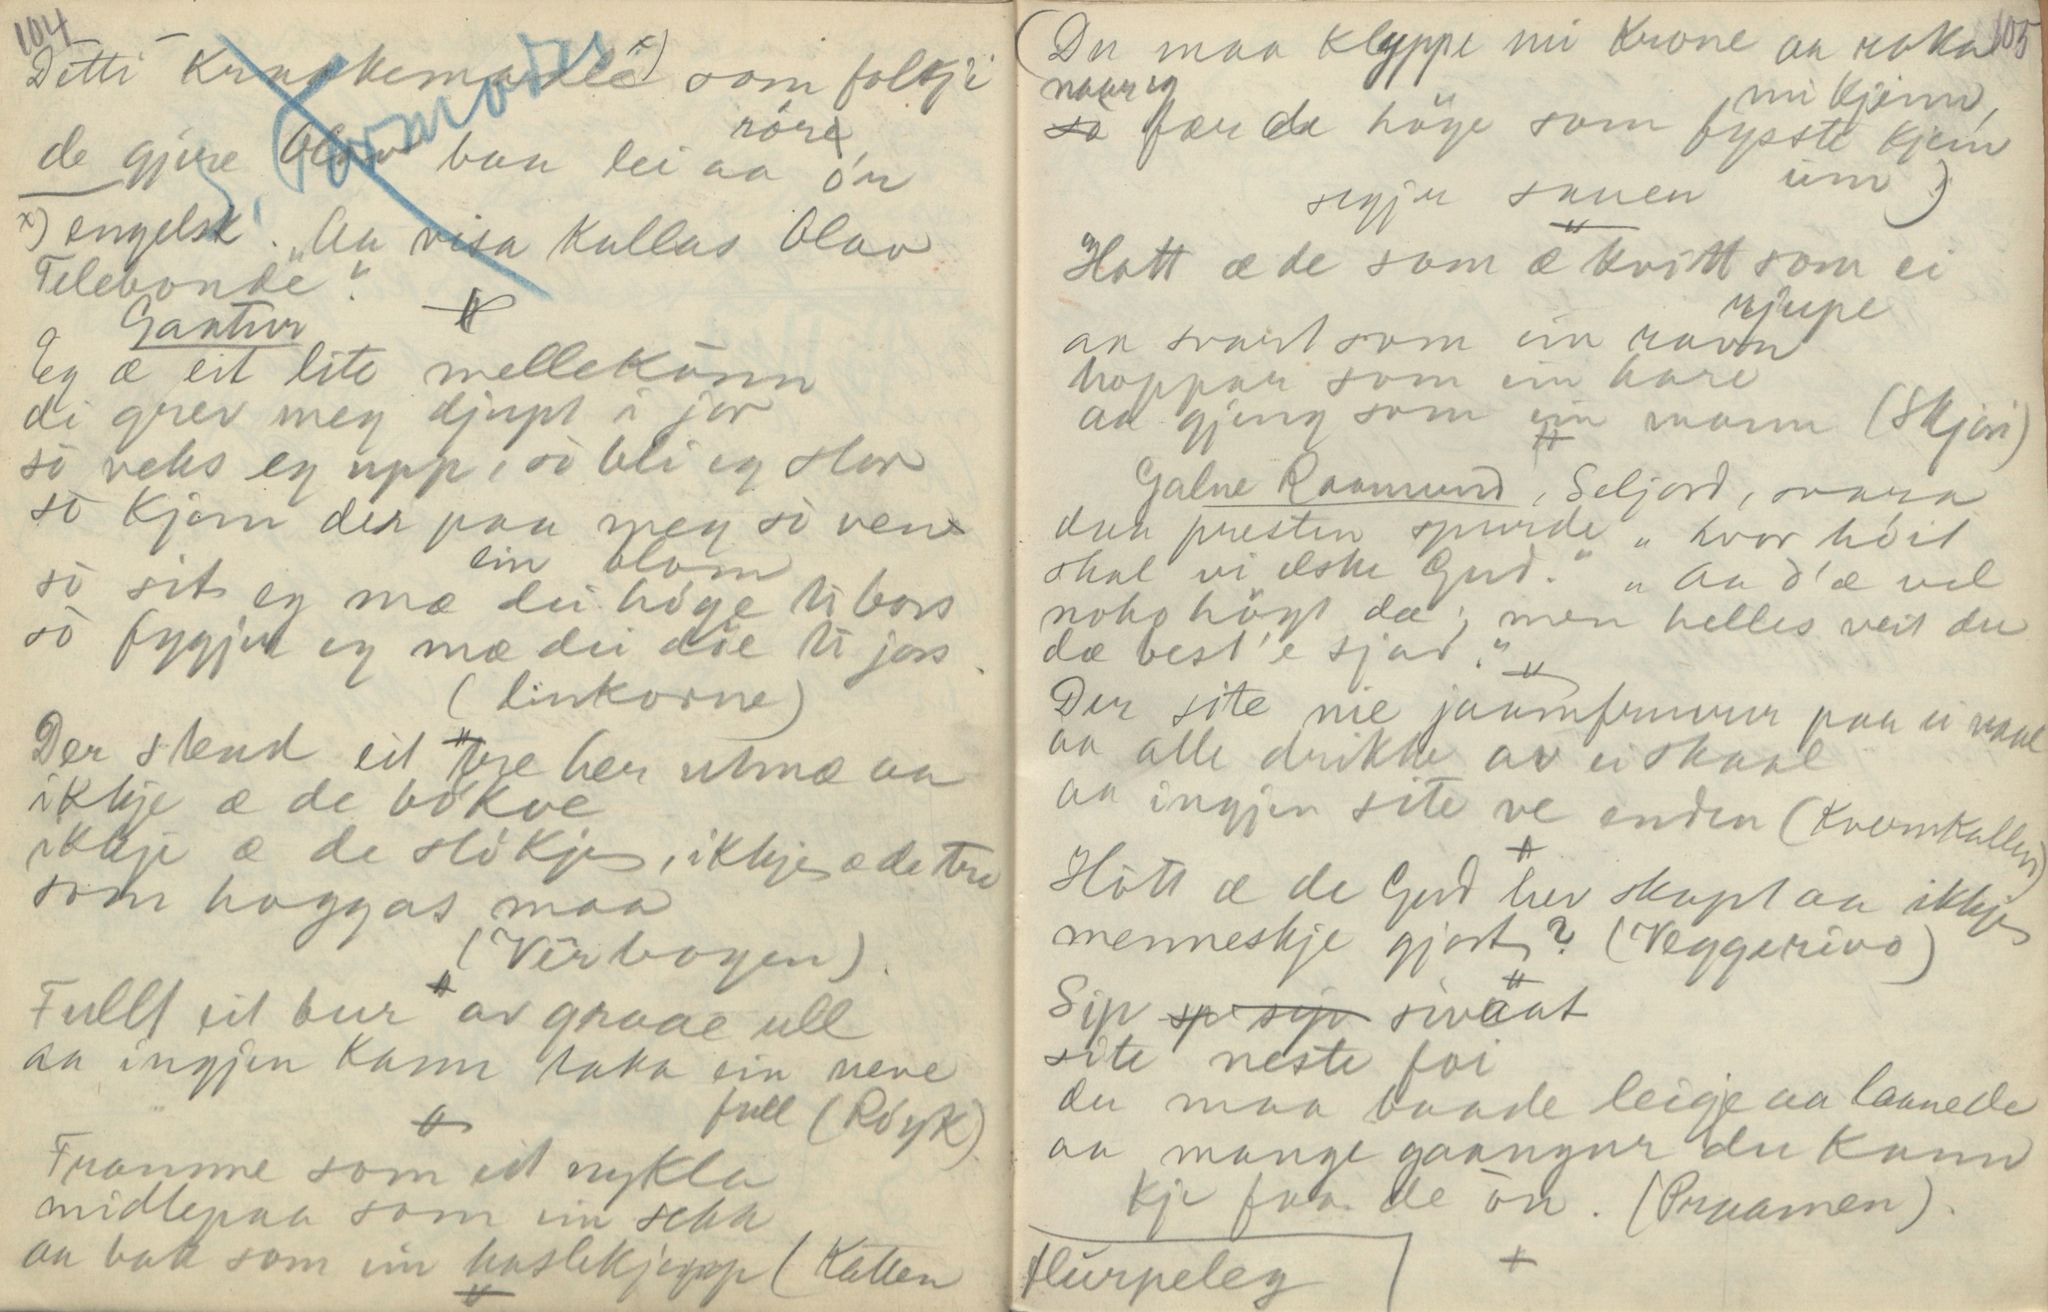 104
Detti Kraakemaalé x) som folkji
röre
de gjere Olav baa lei aa ón
x) engelsk. "Aa visa kallas Olav
Telebonde".
Gaatur
Eg æ eit lite mellekònn
di grev meg djupt i jor
sò veks eg upp, sò bli eg stor
sò kjem der paa meg sò ven
ein blom
sò sit eg mæ dei höge ti bors
sò fygjer eg mæ dei döe ti jors
(linkorne)
Der stend eit tre her utmæ aa
ikkje æ de bòkve
ikkje æ de slòkje, ikkje æ de tre
som hoggas maa
(Vêrbogen).
Fullt eit bur av graae ull
aa ingjen kann taka ein neve
full (Röyk)
Framme som eit nykla
midlepaa som ein sekk
aa bak som ein haslekjepp (Katten
105
(Du maa klyppe mi krone aa raka
naar eg mi kjinn,
fær de höge som fysste kjem
segjer sauen um)
Hott æ de som æ kvitt som ei
rjupe
aa svart som ein ravn
hoppar som ein hare
aa gjeng som ein mann (Skjori)
Galne Raamund, Seljord, svara
daa presten spurde "hvor höit
skal vi elske Gud." "Aa d'æ vel
noko högt dæ; men helles veit du
dæ best'e sjav."
Der site nie jaamfruvur paa ei vaal
aa alle drikke av ei skaal
aa ingjen site ve enden (Kvennkallen)
Hòtt æ de Gud hev skapt aa ikkje
menneskje gjort? (Veggerivo)
Sip sivaat
site neste foi
du maa baade leige aa laane de
aa mange gaangur du kann
kje faa de òn. (Praamen).
Hurpeleg